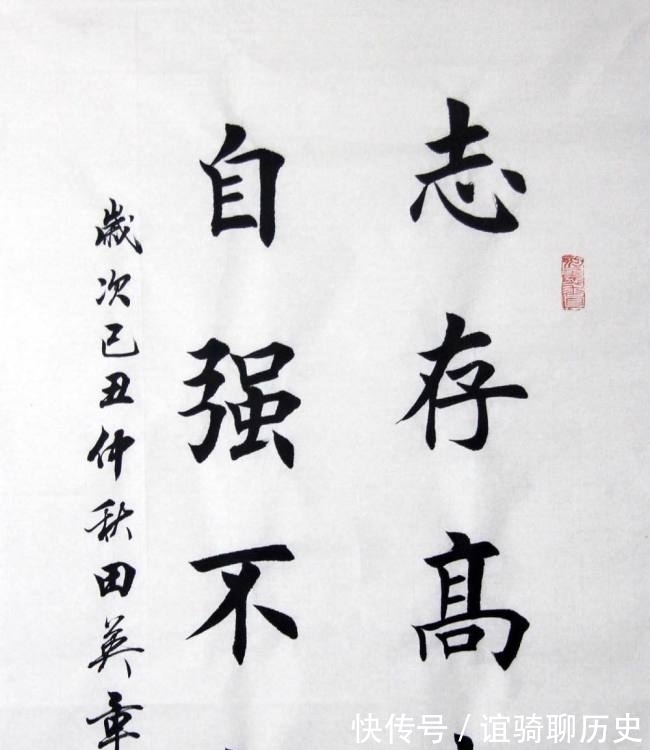 志存高
自强不
歲次己丑仲秋田英章
快传号/谊骑聊历史